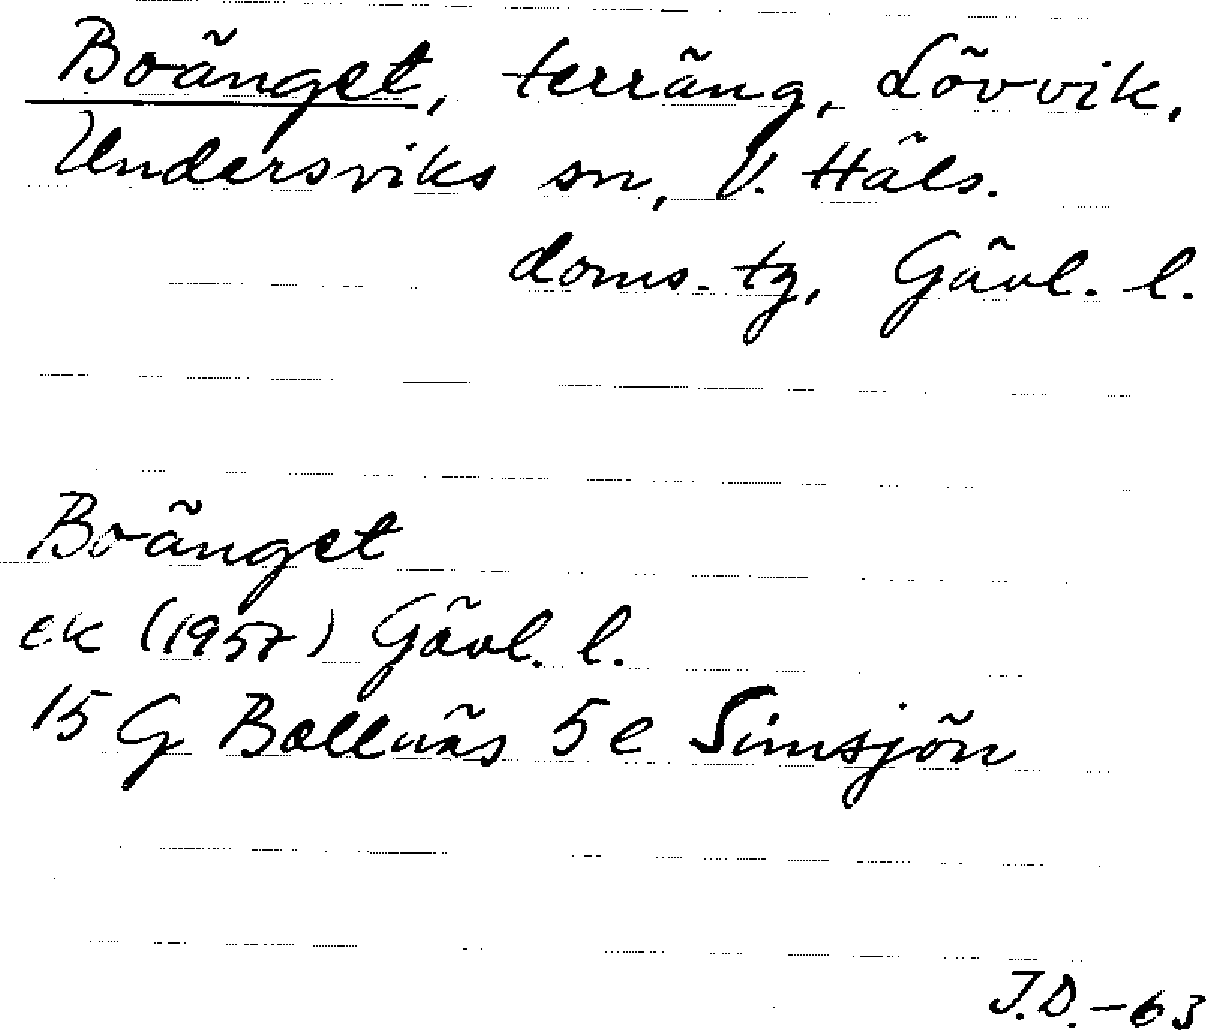 Boänget, terräng, Lövvik,
Undersviks sn, V. Häls.
doms. tg, Gävl. l.
Boänget
ek (1957) Gävl. l.
15 G Bollnäs 5 e Simsjön
J.D. - 63